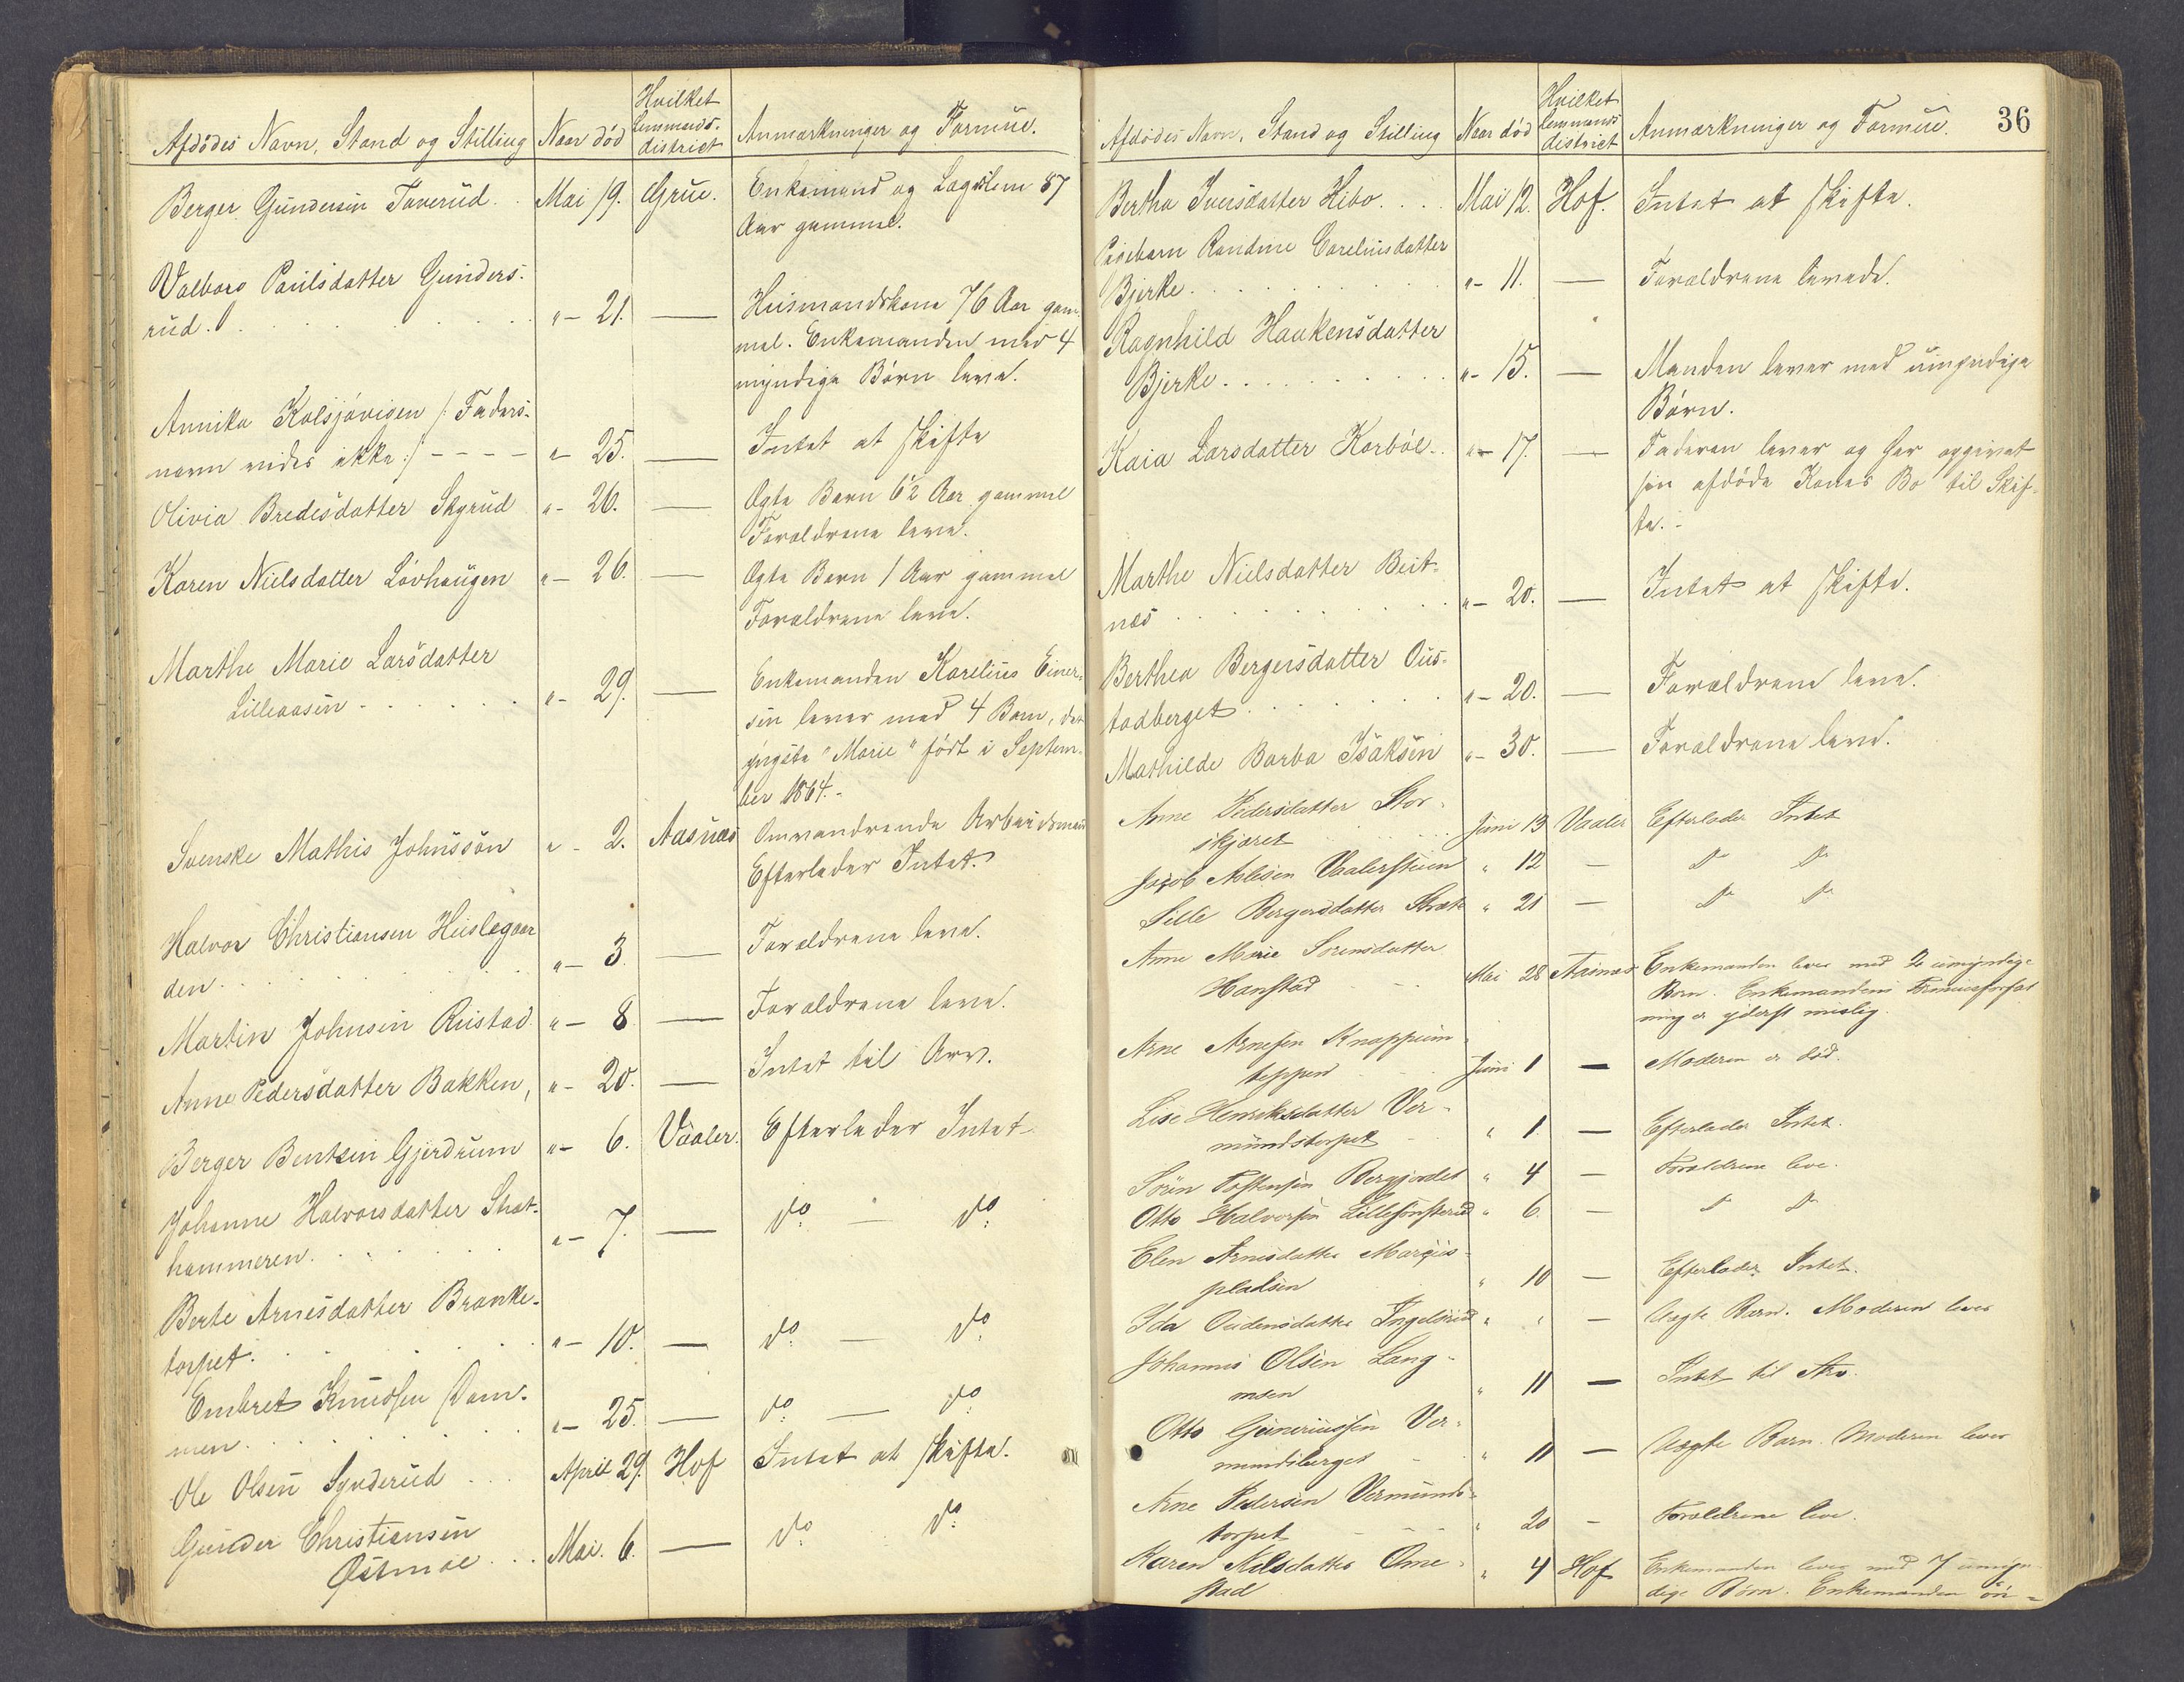 Afdødes Navn, Stand og Stilling | Naar død | Hvilket Lensmands-district | Anmærkninger og Formue.
Berger Gundersen Taverud . . Mai 19. Grue. Enkemand og Lægslem 87
Aar gammel.
Valborg Paulsdatter Gunders-
rud. . . . . . . . "- 21. — Huusmandskone 76 Aar gam-
mel. Enkemanden med 4
myndige Børn leve.
Annika Kolsjøvigen /: Faders-
navn vides ikke :/ - - - - "- 25. — Intet at skifte
Olivia Bredesdatter Skyrud "- 26. — Ægte Barn 6½ Aar gammel
Forældrene leve.
Karen Nielsdatter Løvhaugen "- 26. — Ægte Barn 1 Aar gammel
Forældrene leve.
Marthe Marie Larsdatter
Lilleaasen - . . . . . "- 29. — Enkemanden Karelius Einer-
sen lever med 4 Børn, det
yngste "Marie" født i Septem-
ber 1864.-
Svenske Mathis Johnssøn " - 2. Aasnæs Omvandrende Arbeidsmand
Efterlader Intet.
Halvor Christiansen Huslegaar
den . . . . . . "- 3. — Forældrene leve.
Martin Johnsen Rustad "- 8. — Forældrene leve.
Anne Pedersdatter Bakken, "- 20. — Intet til Arv.
Berger Bentsen Gjerdrum "- 6. Vaaler. Efterlader Intet
Johanne Halvorsdatter Strat-
hammeren . . . . . . "- 7. — do — do
Berte Arnesdatter Branke-
torpet. . . . . . . "- 10. — do — do
Embret Knudsen Dam-
men . . . . . . . "- 25. — do — do
Ole Olsen Synderud . . . April 29. Hof Intet at skifte.
Gunder Christiansen
Østmoe . . . Mai. 6. — do do
36
Afdødes Navn, Stand og Stilling | Naar død | Hvilket Lensmands district | Anmærkninger og Formue.
Bertha Iversdatter Kibo. . . . Mai 12. Hof. Intet at skifte.
Pigebarn Randine Careliusdatter
Bjerke. . . . . . . . "- 11. — Forældrene levede.
Ragnhild Haakensdatter
Bjerke. . . . . . . . "- 15. — Manden lever med umyndige
Børn.
Kaia Larsdatter Korbøl. . "- 17. — Faderen lever og har opgivet
sin afdøde Kones Bo til Skif-
te. -
Marthe Nielsdatter Beit-
næs . . . . . . . . "- 20. — Intet at skifte.
Berthea Bergersdatter Ous-
tadberget . . . . . . "- 20. — Forældrene leve.
Mathilde Barba Isaksen "- 30. — Forældrene leve.
Anne Pedersdatter Stor-
skjæret . . . Juni 13 Vaaler Efterlader Intet
Jacob Aslesen Vaalersteien " 12 — do do
Sille Bergersdatter Stræte " 21 — do do
Anne Marie Sørensdatter
Hanstad - - - Mai 28 Aasnæs Enkemanden lever med 2 umyndige
Børn. Enkemandens Formuesforfat
ning er yderst mislig.
Arne Arnesen Knappum-
teppen - - - Juni 1 — Moderen er død.
Lise Henriksdatter Ver-
mundstorpet - " 1 — Efterlader Intet.
Søren Tostensen Bergjordet " 4 — Forældrene leve.
Otto Halvorsen Lillesønsterud " 6. — do do
Elen Arnesdatter Margus-
pladsen " 10 — Efterlader Intet.
Ida Oudensdatter Ingelsrud " " — Uægte Barn. Moderen lever
Johannes Olsen Lang-
moen " 11 — Intet til Arv.
Otto Guneriussen Ver-
mundsberget - " 11 — Uægte Barn. Moderen lever
Arne Pedersen Vermunds-
torpet - - - " 20 - Forældrene leve.
Karen Nilsdatter Ome-
stad " 4 Hof Enkemanden lever med 7 umyn-
dige Børn. Enkemanden øn-